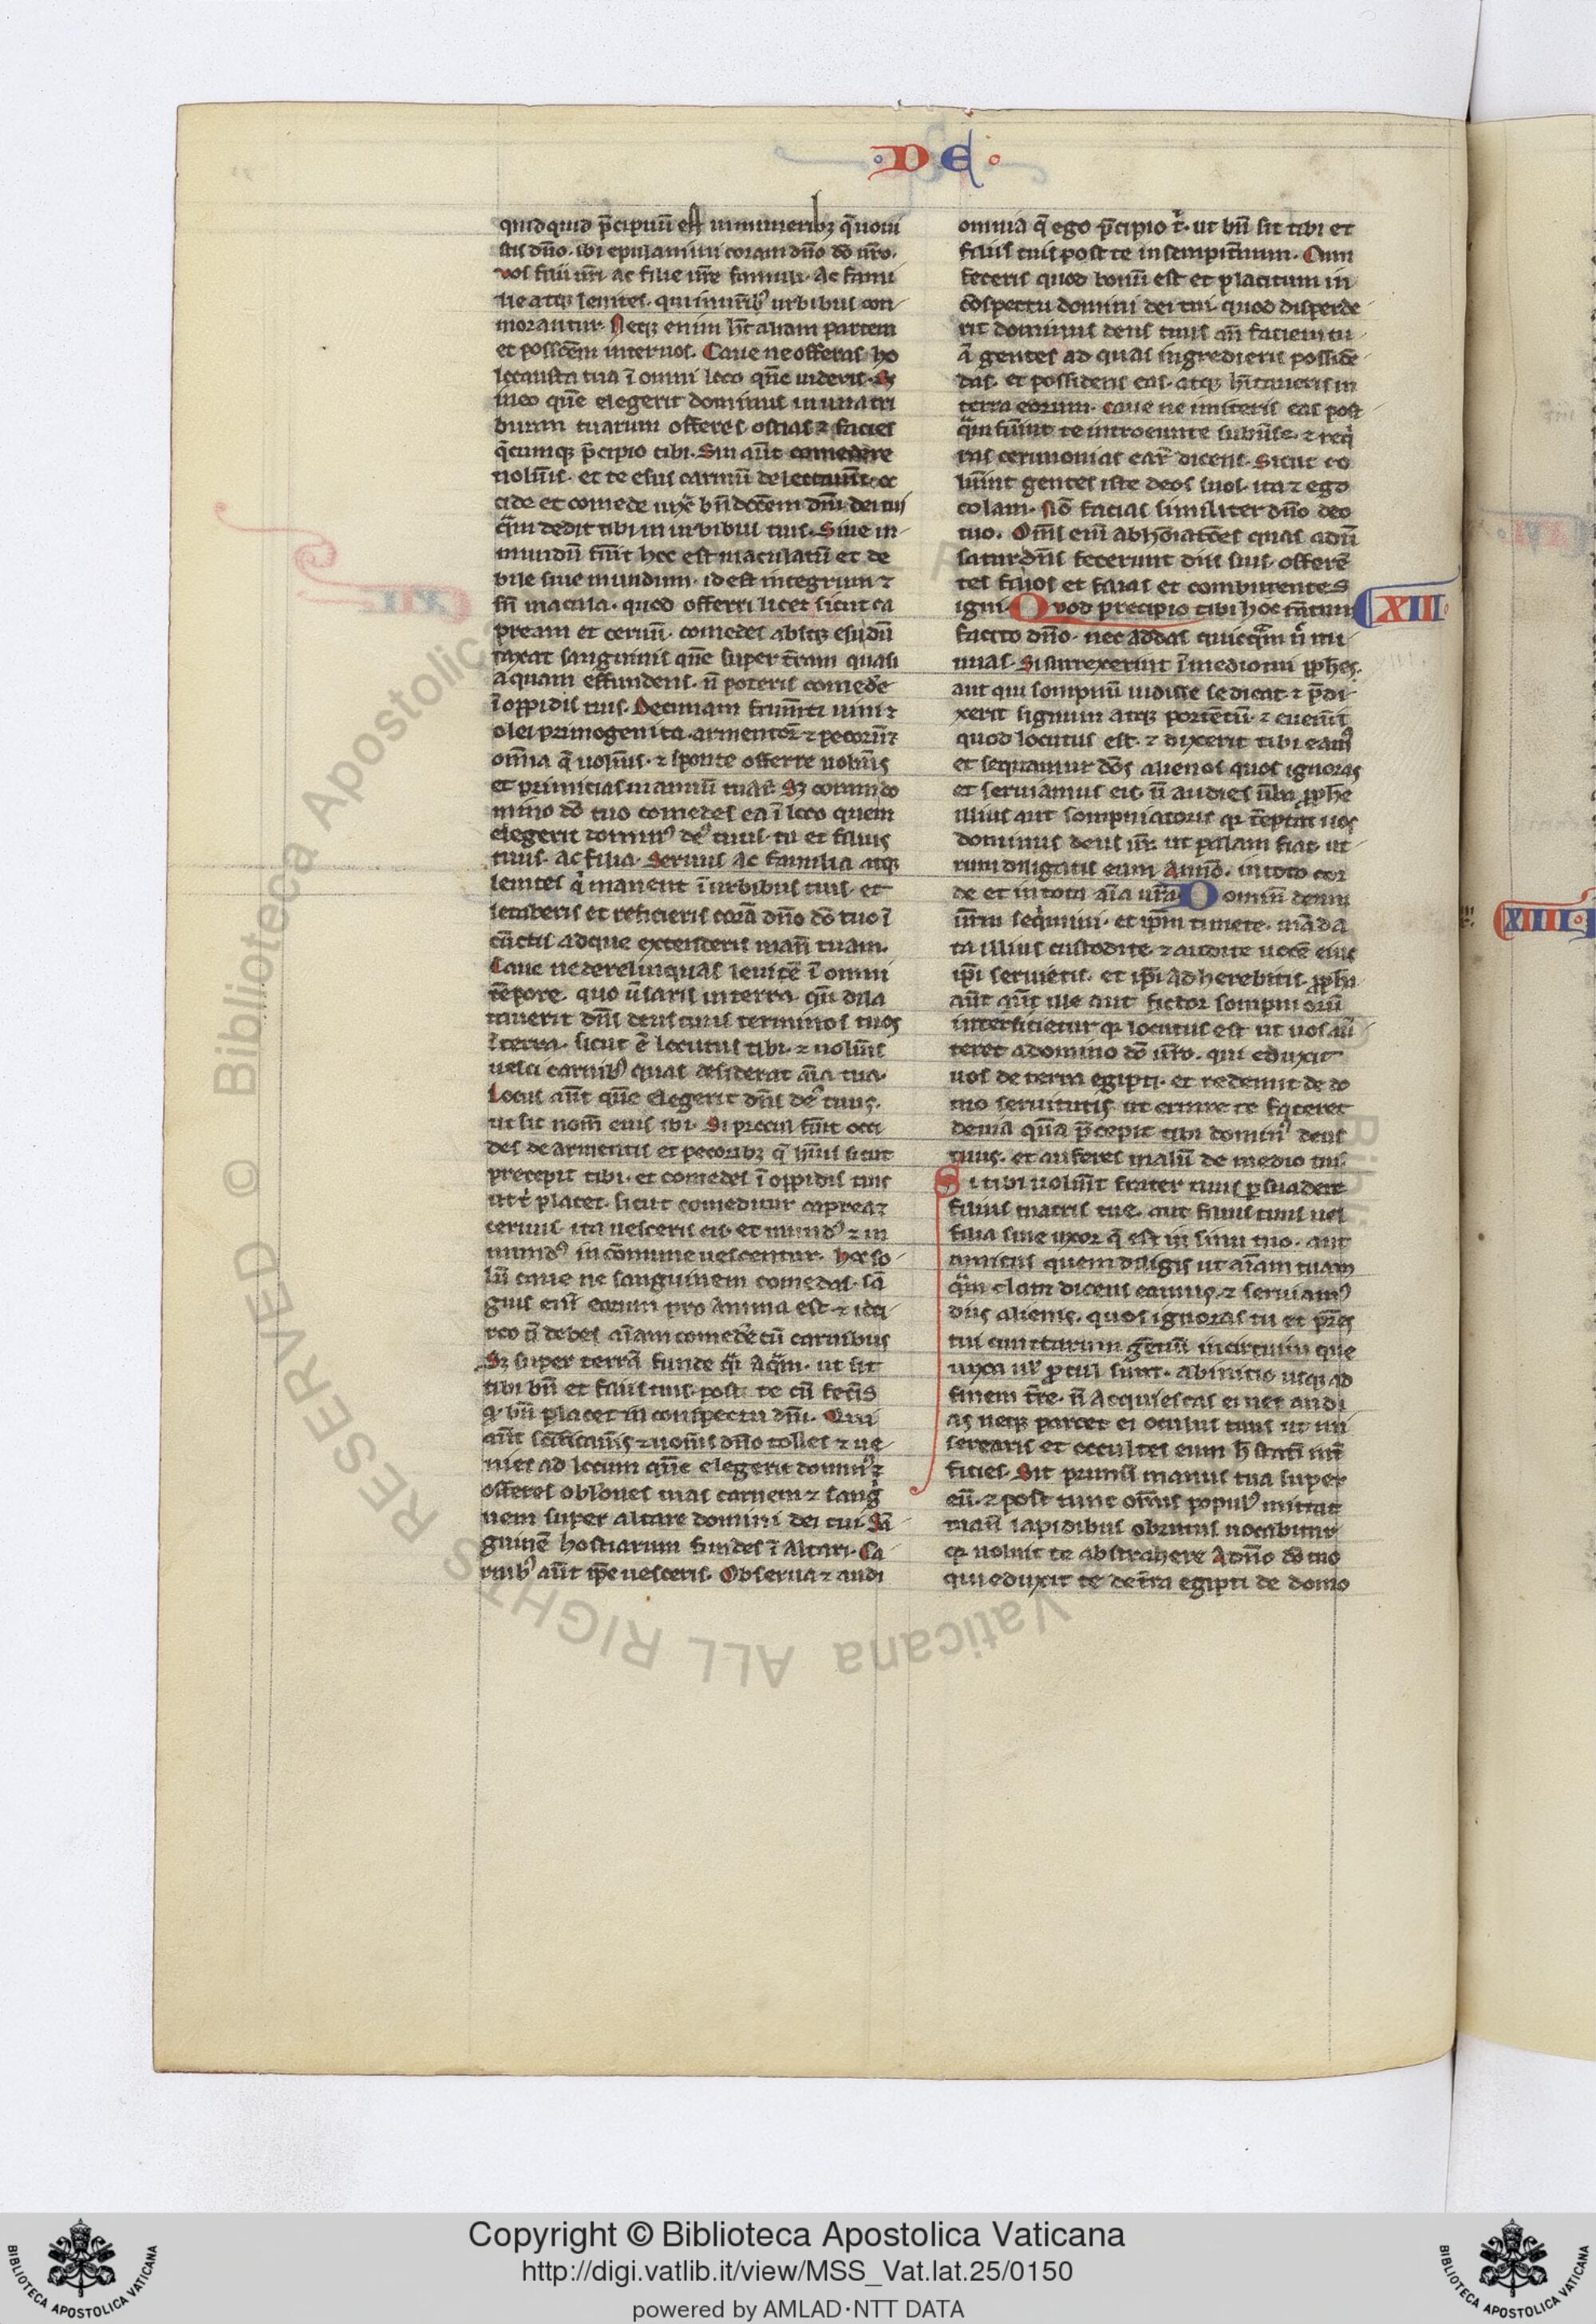 D E
quidquid p̄cipuū est in munerib; q̄ uoui
stis dn̄o. ibi epulamini coram dn̄o dō ur̄o.
vos filii ur̄i ac filie ur̄e famuli. ac famu
le atq; leuites. qui in ur̄ib⁹ urbibus con
morantur. Neq; enim hn̄t aliam partem
et possc̄em inter uos. Caue ne offeras ho
locausta tua ī omni loco que̅ uideris. Sz
in eo que̅ elegerit dominus in una tri
buum tuarum offeres ostias ⁊ facies
q̄cumq; p̄cipio tibi. Sin aūt comedere
uolūis. et te esus carniū delectauīt. oc
cide et comede iux̄ bn̄dcc̄em dn̄i dei tui
q̄m dedit tibi in urbibus tuis. Siue in
mundū fūit hoc est maculatū et de
bile siue mundum. id est integrum ⁊
sn̄ macula. quod offerri licet sicut ca
pream et ceruū. comedes absq; esu dū
taxat sanguinis que̅ super t̄ram quasi
aquam effundens. n̄ poteris comedēre
ī oppidis tuis. Decimam frum̄ti uini ⁊
olei primogenita armentoꝝ ⁊ pecoꝝ ⁊
om̄ia q̄ uoūis. ⁊ sponte offerre uolūis
et primicias manuū tuaꝝ. Sz coram do
mino dō tuo comedes ea ī loco quem
elegerit domin⁹ de⁹ tuus. tu et filius
tuus. ac filia. Seruus ac familia atq;
leuites q̇ manent ī urbibus tuis. et
letaberis et reficieris corā dn̄o dō tuo ī
cūctis ad que extenderis manū tuam.
Caue ne derelinquas leuitē ī omni
tēpore. quo ūsaris in terra. qn̄ dila
tauerit dn̄s deus tuus terminos tuos
ī terra. sicut ē locutus tibi. ⁊ uolūis
uesci carnib⁹ quas desiderat aīa tua.
Locus aūt que̅ elegerit dn̄s de⁹ tuus.
ut sit nom̄ eius ibi. Si procul fūit occi
des de armentis et pecorib; q̄ hūis sicut
precepit tibi. et comedes ī oppidis tuis
ut t̄ placet. sicut comeditur caprea ⁊
ceruus. ita uesceris eis. et mund⁹ ⁊ in
mund⁹ in cōmune uescentur. hoc so
lū caue ne sanguinem comedas. sā
guis eni̅ eorum pro anima est. ⁊ idci
rco n̄ debes aīam comedēre cū carnibus
Sz super terrā funde q̄i aq̄m. ut sit
tibi bn̄ et filiis tuis post te cū fec̄is
q. bn̄ placet in conspectu dn̄i. Que
aūt sc̄ificaūis ⁊ uoūis dn̄o tolles ⁊ ue
nies ad locum que̅ elegerit domin⁹ ⁊
offeres oblōnes tuas carnem ⁊ sang̊
nem super altare domini dei tui. Sā
guinē hostiarum fundes ī altari. Ca
rnib⁹ aūt ip̄e uesceris. Obserua ⁊ audi
omnia q̄ ego p̄cipio t̄. ut bn̄ sit tibi et
filiis tuis post te in sempit̄num. Cum
feceris quod bonū est et placitum in
cōspectu domini dei tui. quod disperde
rit dominus deus tuus an̄ faciem tu
ā gentes ad quas ingredieris posside̅
das. et possidens eas. atq; hītaueris in
terra eorum. caue ne imiteris eas post
q̄m fūint te introeunte subūse. ⁊ req̇
ras cerimonias eaꝝ dicens. Sicut co
lūint gentes iste deos suos. ita ⁊ ego
colam. Nō facias similiter dn̄o deo
tuo. Om̄s eni̅ abhōiatōes quas adū
satur dn̄s fecerunt diis suis. offerē
tes filios et filias et comburentes
igni. Quod precipio tibi hoc tn̄tum
XIII
facito dn̄o. nec addas quicq̄m n̄ mi
nuas. Si surrexerint ī medio tui ꝓphes.
aut qui sompniū uidisse se dicat. ⁊ p̄di
xerit signum atq; portētū. ⁊ euen̄it
quod locutus est. ⁊ dixerit tibi eam⁹
et sequamur dōs alienos quos ignoras
et seruiamus eis. n̄ audies ūba ꝓphe
illius aut sompniatoris q. tēptat uos
dominus deus ur̄. ut palam fiat. ut
rum diligatis eum an nō. in toto cor
de et in tota aīa ur̄a. Dominū deum
ur̄m seq̇mini. et ip̄m timete. māda
ta illius custodite. ⁊ audite uocē eius
ip̄i seruietis. et ip̄i adherebitis. ꝓph̄a
aūt aūt ille aut fictor sompniorū
interficietur q. locutus est ut uos aū
teret a domino dō ur̄o. qui eduxit
uos de terra egipti. et redemit de do
mo seruitutis. ut errare te faceret
de uia qua̅ p̄cepit tibi domin⁹ deus
tuus. et auferes malū de medio tui.
Si tibi uolūit frater tuus p̱suadere
filius matris tue. aut filius tuus uel
filia siue uxor q̄ est in sinu tuo. aut
amicus quem diligis ut aīam tuam
q̄m clam dicens eamus. ⁊ seruiam⁹
diis alienis. quos ignoras tu et pr̄es
tui cunctarum gentiū in circuitu que
iuxta ul̄ ꝓcul sunt. ab initio usq; ad
finem tr̄e. n̄ acquiescas ei nec audi
as neq; parcet ei oculus tuus ut mi
serearis et occultes eum. h̄ statī int̄
ficies. Sit primū manus tua super
eū. ⁊ post tunc om̄is popul⁹ mittat
manū lapidibus obrutus necabitur
q. uoluit te abstrahere a dn̄o dō tuo
qui eduxit te de t̄ra egipti de domo
XIIII
Copyright © Biblioteca Apostolica Vaticana
http://digi.vatlib.it/view/MSS_Vat.lat.25/0150
powered by AMLAD·NTT DATA
© Biblioteca Apostolica Vaticana ALL RIGHTS RESERVED
BIBLIOTECA APOSTOLICA VATICANA
BIBLIOTECA APOSTOLICA VATICANA